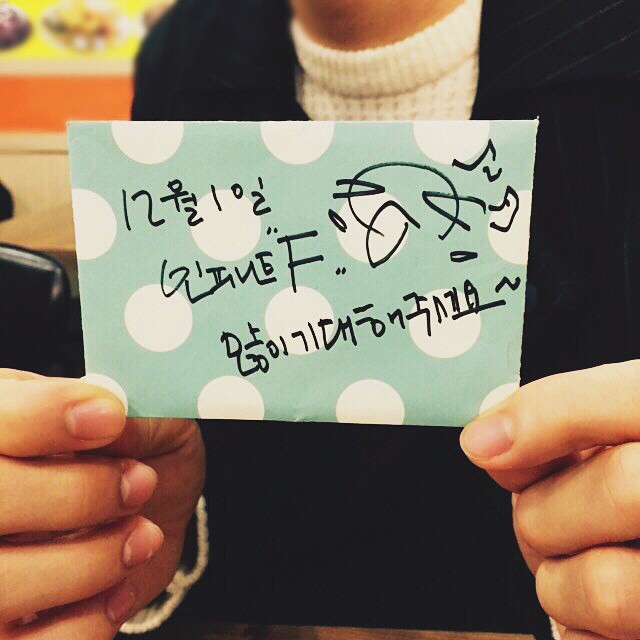 12월 1일
인피니트 "F"
많이 기대해주세요~